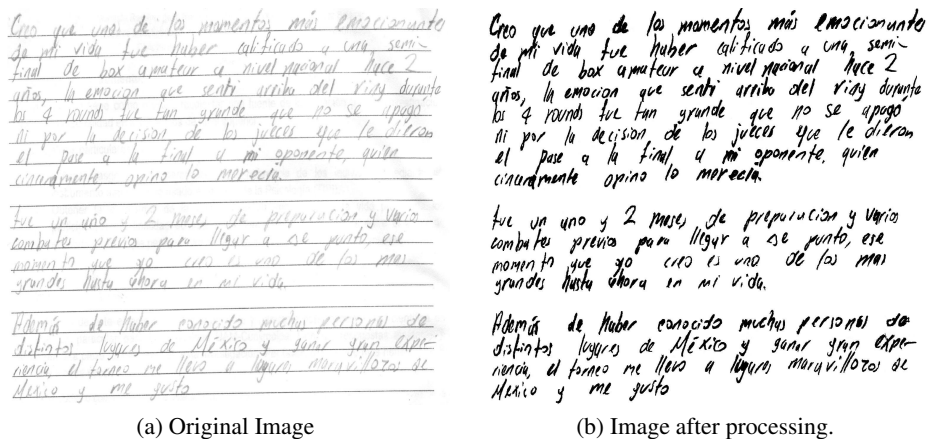 Creo que uno de los momentos más emocionantes
de mi vida fue haber calificado a una semi-
final de box amateur a nivel nacional hace 2
años, la emocion que senti arriba del ring durante
los 4 rounds fue tan grande que no se apagó
ni por la decision de los jueces que le dieron
el pase a la final a mi oponente, quien
cinceramente, opino lo merecia.
fue un año y 2 meses de preparacion y varios
combates previos para llegar a se punto, ese
momento que yo creo es uno de los mas
grandes hasta ahora en mi vida.
Además de haber conocido muchas personas de
distintos lugares de México y ganar gran expe-
riencia, el torneo me llevo a lugares maravillozos de
Mexico y me gusto
(a) Original Image
Creo que uno de los momentos más emocionantes
de mi vida fue haber calificado a una semi-
final de box amateur a nivel nacional hace 2
años, la emocion que senti arriba del ring durante
los 4 rounds fue tan grande que no se apagó
ni por la decision de los jueces que le dieron
el pase a la final a mi oponente, quien
cinceramente opino lo merecia.
fue un año y 2 meses de preparacion y varios
combates previos para llegar a se punto, ese
momento que yo creo es uno de los mas
grandes hasta ahora en mi vida.
Además de haber conocido muchas personas de
distintos lugares de México y ganar gran expe-
riencia, el torneo me llevo a lugares maravillozos de
Mexico y me gusto
(b) Image after processing.